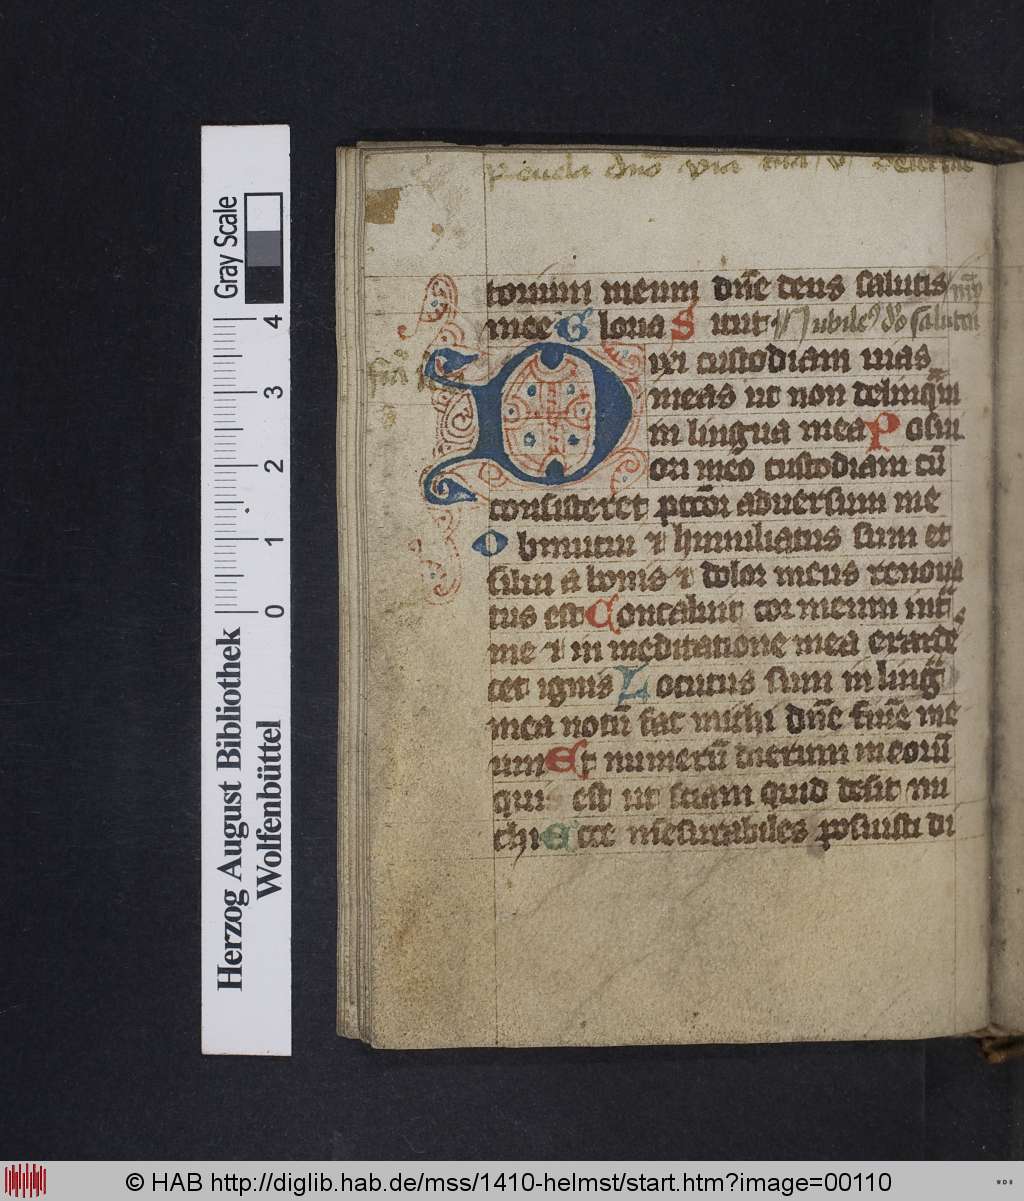 Reuela dno via tua
torium meum dn̄e deus salutis
mee Gloria Sicut Jubilem9 d̄o salutari
Dixi custodiam uias
meas ut non delinqm̄
in lingua mea Posui
ori meo custodiam cū
consisteret pcc̄or aduersum me
Obmutui ⁊ humiliatus sum et
silui a bonis ⁊ dolor meus renoua
tus est Concaluit cor meum int̄
me ⁊ in meditatione mea exarde
cet ignis Locutus sum in linḡ
mea notū fac michi dn̄e finē me
um Et numerū dierum meorū
quis est ut sciam quid desit mi
chi Ecce mesurabiles posuisti di
Herzog August Bibliothek
Wolfenbüttel
0 1 2 3 4
Gray Scale
© HAB http://diglib.hab.de/mss/1410-helmst/start.htm?image=00110